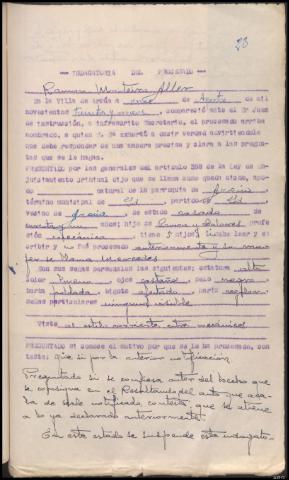 INDAGATORIA DEL PROCESADO
Ramon Monteira Aller
En la Villa de Arzúa a once de Agosto de mil
novecientos treinta y nueve, ante el Sr Juez
de Instrucción, e infrascrito Secretario, el procesado arriba
nombrado, a quien S. Sª exhortó a decir verdad advirtiendole
que debe responder de una manera precisa y clara a las pregun-
tas que se le hagan.
PREGUNTADO por las generales del artículo 388 de la Ley de En-
juiciamiento criminal dijo que se llama como queda dicho, apo-
dado natural de la parroquia de
término municipal de id, partido de id
vecino de de estado casado de
años; hijo de Ramon y Dolores, profe-
sión tiene hijos; sabe leer y es-
cribir y no fué procesado anteriormente y su mu-
jer se llama Mercedes
Son sus señas personales las siguientes; estatura alta
color bueno, ojos castaños, pelo negro
barba poblada bigote afeitado nariz
señas particulares ninguna visible
Viste
PREGUNTADO si conoce el motivo por que se le ha procesado, con-
testa: que si por la anterior notificación
Preguntado si se confiesa autor del hecho que
se consigna en el Resultando del auto que aca-
ba de serle notificado, contesta que se atiene
a lo ya declarado anteriormente.
En este estado se suspende esta indagato-